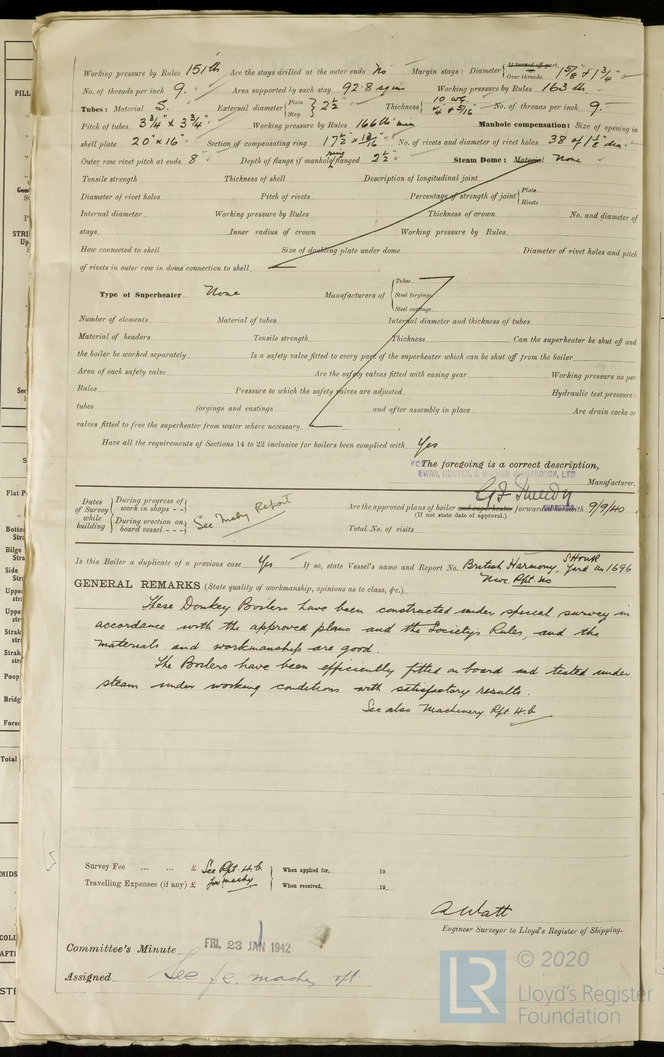 Working pressure by Rules 151 lb Are the stays drilled at the outer ends No Margin stays: Diameter { At turned off part, Over threads 1 5/8" & 1 3/4"
No. of threads per inch 9. Area supported by each stay 92.8 sq ins Working pressure by Rules 163 lb
Tubes: Material S. External diameter { Plain Stay } 2 1/2" Thickness { 10 WG 1/4" & 5/16" No. of threads per inch 9.
Pitch of tubes 3 3/4" x 3 3/4" Working pressure by Rules 166 lb min Manhole compensation: Size of opening in
shell plate 20" x 16" Section of compensating ring 17 1/2" x No. of rivets and diameter of rivet holes 38 of 1 1/8" dia
Outer row rivet pitch at ends 8" Depth of flange if manhole ring flanged 2 1/2" Steam Dome: Material None
Tensile strength Thickness of shell Description of longitudinal joint
Diameter of rivet holes Pitch of rivets Percentage of strength of joint { Plate Rivets
Internal diameter Working pressure by Rules Thickness of crown No. and diameter of
stays Inner radius of crown Working pressure by Rules
How connected to shell Size of doubling plate under dome Diameter of rivet holes and pitch
of rivets in outer row in dome connection to shell
Type of Superheater None Manufacturers of { Tubes Steel forgings Steel castings
Number of elements Material of tubes Internal diameter and thickness of tubes
Material of headers Tensile strength Thickness Can the superheater be shut off and
the boiler be worked separately Is a safety valve fitted to every part of the superheater which can be shut off from the boiler
Area of each safety valve Are the safety valves fitted with easing gear Working pressure as per
Rules Pressure to which the safety valves are adjusted Hydraulic test pressure:
tubes forgings and castings and after assembly in place Are drain cocks or
valves fitted to free the superheater from water where necessary
Have all the requirements of Sections 14 to 22 inclusive for boilers been complied with Yes
FOR The foregoing is a correct description,
SWAN, HUNTER, & WIGHAM RICHARDSON, LTD.
Manufacturer.
Dates of Survey while building { During progress of work in shops - - During erection on board vessel - - - } See Mchy Report
Are the approved plans of boiler and superheater forwarded herewith 9/9/40
(If not state date of approval.)
Total No. of visits
Is this Boiler a duplicate of a previous case Yes If so, state Vessel's name and Report No. British Harmony, S. Hunter Yard No 1696
Nwc. Rpt. No
GENERAL REMARKS (State quality of workmanship, opinions as to class, &c.)
These Donkey Boilers have been constructed under special survey in
accordance with the approved plans and the Society's Rules, and the
materials and workmanship are good.
The Boilers have been efficiently fitted on board and tested under
steam under working conditions with satisfactory results.
See also Machinery Rpt. 4.b
Survey Fee ... ... £ See Rpt. 4.b When applied for, 19
Travelling Expenses (if any) £ for machy When received, 19
A Watt
Engineer Surveyor to Lloyd's Register of Shipping.
Committee's Minute FRI. 23 JAN 1942
Assigned See f.e. machy rpt
LR © 2020
Lloyd's Register
Foundation